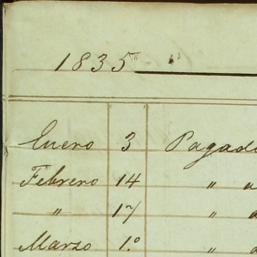 1835
Enero 3 Pagad
Febrero 14 " a
" 17 " a
Marzo 1.º " a